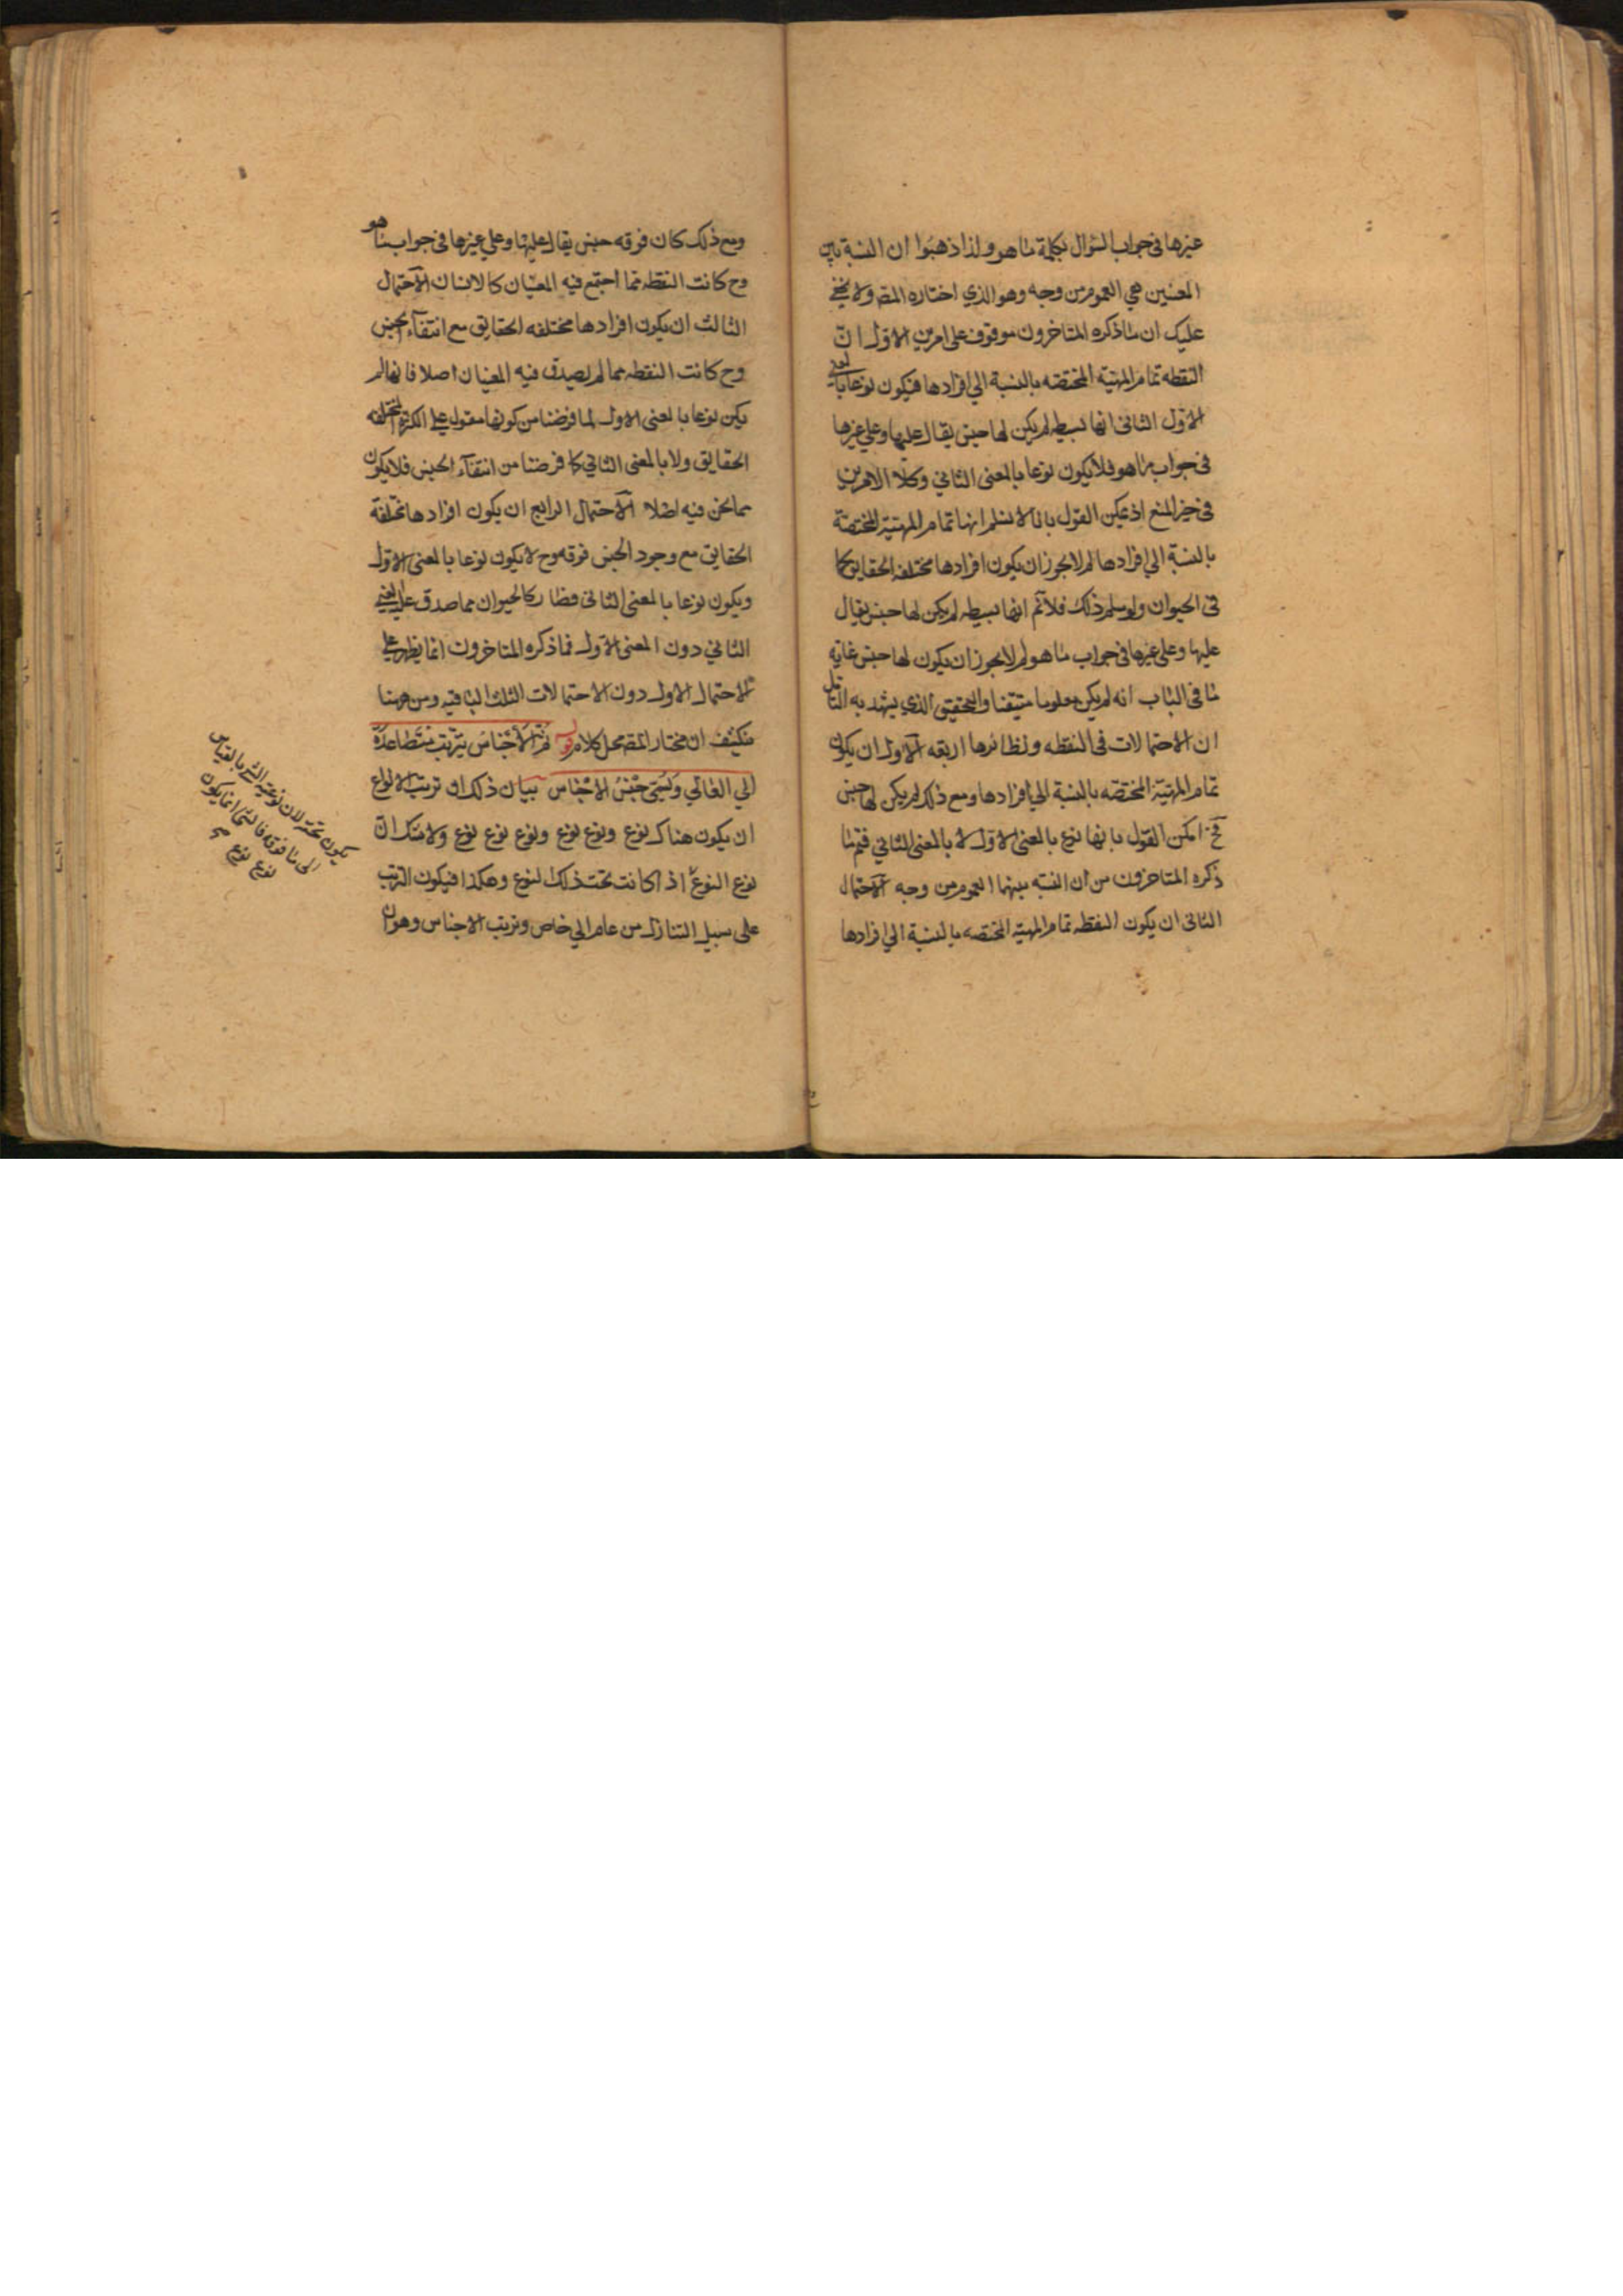 غيرها في جواب السؤال بكلمة ما هو ولذا ذهبوا ان النسبة بين
المعنيين هي العموم من وجه وهو الذي اختاره المصـ ولا يخفى
عليك ان ما ذكره المتاخرون موقوف على امرين الاول انّ
النقطه تمام المهيّة المختصه بالنسبة الي افرادها فيكون نوعا بالمعنى
الاول الثاني انها بسيطه لم يكن لها جنس يقال عليها وعلي غيرها
في جواب ما هو فلا يكون نوعا بالمعنى الثاني وكلا الامرين
في حيز المنع اذ يمكن القول بانا لا نسلم انها تمام المهيّة المختصّة
بالنسبة الي افرادها لم لا يجوز ان يكون افرادها مختلفه الحقايق كما
في الحيوان ولو سلم ذلك فلا نم انها بسيطه لم يكن لها جنس يقال
عليها وعلي غيرها في جواب ما هو لم لا يجوز ان يكون لها جنس غاية
ما في الباب انه لم يكن معلوما متيقنا والتحقيق الذي يشهد به التامل
ان الاحتمالات في النقطه ونظائرها اربعه الاول ان يكون
تمام المهيّة المختصه بالنسبة الي افرادها ومع ذلك لم يكن لها جنس
فح امكن القول بانها نوع بالمعنى الاول لا بالمعنى الثاني فتم ما
ذكره المتاخرون من ان النسبه بينهما العموم من وجه الاحتمال
الثاني ان يكون النقطه تمام المهيّه المختصه بالنسبة الي افرادها
ومع ذلك كان فوقه جنس يقال عليها وعلي غيرها في جواب ما هو
وح كانت النقطه مما اجتمع فيه المعنيان كالانسان الاحتمال
الثالث ان يكون افرادها مختلفه الحقايق مع انتفآء الجنس
وح كانت النقطه مما لم يصدق فيه المعنيان اصلا فانها لم
يكن نوعا بالمعنى الاول لما فرضنا من كونها مقول علي الكثرة المختلفه
الحقايق ولا بالمعنى الثاني كما فرضنا من انتفآء الجنس فلا يكون
مما نحن فيه اصلا الاحتمال الرابع ان يكون افرادها مختلفة
الحقايق مع وجود الجنس فوقه وح لا يكون نوعا بالمعنى الاول
ويكون نوعا بالمعنى الثاني فصار كالحيوان مما صدق عليه المعنى
الثاني دون المعنى الاول فما ذكره المتاخرون انما يظهر علي
الاحتمال الاول دون الاحتمالات الثلث الباقيه ومن ههنا
ينكشف ان مختار المصـ محل كلام قوله ثُمَّ الأَجْنَاسُ يَتَرَتَّبُ مُتَصَاعِدَةً
الي العَالِي وَيُسَمَّى جِنْسُ الاَجْنَاسِ بيان ذلك ان ترتيب الانواع
ان يكون هناك نوع ونوع نوع ونوع نوع نوع ولا شك انّ
نوع النوع اذا كانت تحت ذلك النوع وهكذا فيكون الترتيب
على سبيل التنازل من عام الي خاص وترتيب الاجناس وهو ان
يكون تحته لان نوعية الشيء بالقياس
الى ما فوقه فالشيء انما يكون
نوع نوع